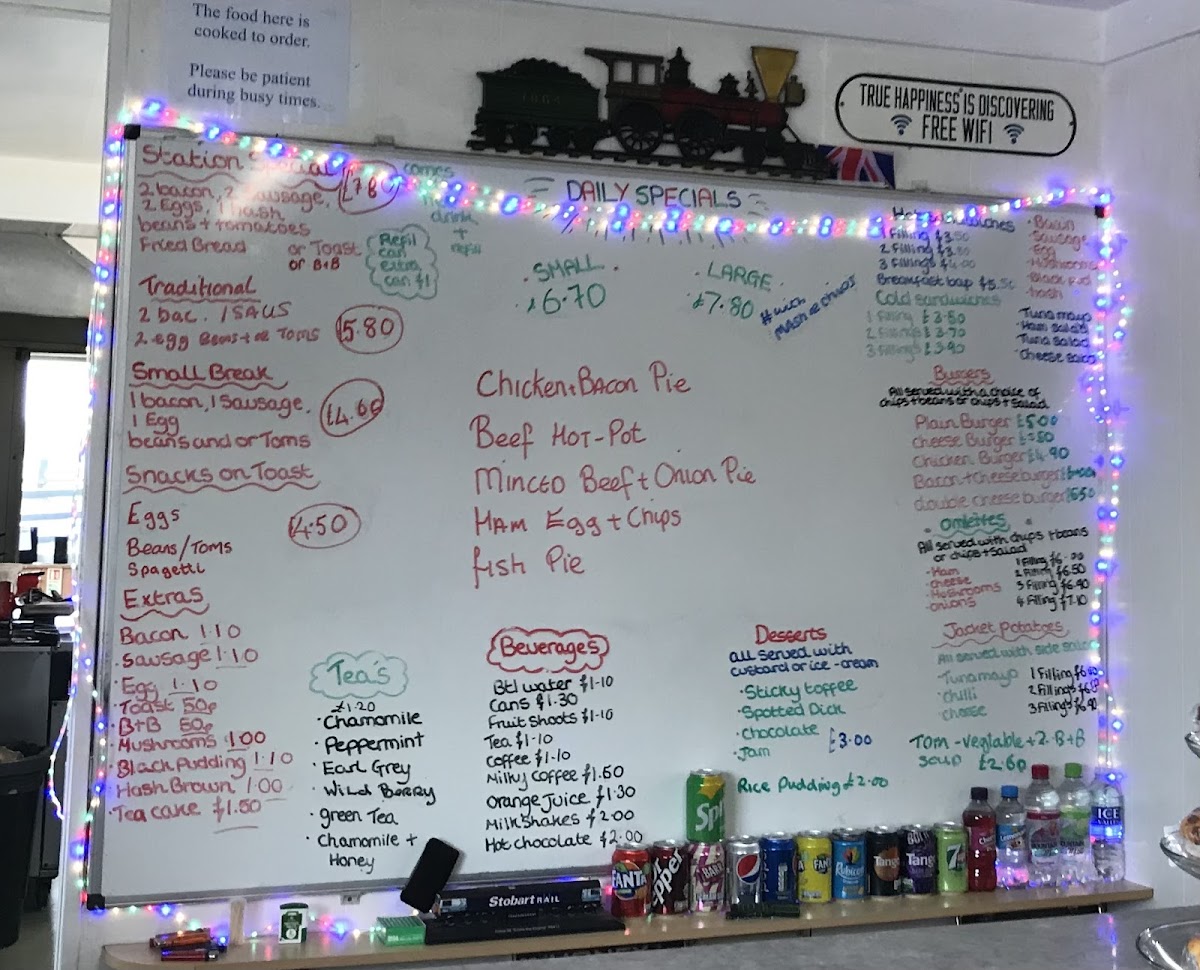 The food here is
cooked to order.
Please be patient
during busy times.
TRUE HAPPINESS IS DISCOVERING
FREE WIFI
Station Special £7.80
comes
drink
+
refill
2 bacon, 2 Sausage,
2 Eggs, 1 hash
beans + tomatoes
Fried Bread or Toast
or B+B
Refil
can
extra
can £1
Traditional
2 bac. 1 SAUS
2 egg Beans + or Toms
£5.80
Small Break
1 bacon, 1 Sausage,
1 Egg
beans and or Toms
£4.60
Snacks on Toast
Eggs
£4.50
Beans/Toms
Spagetti
Extras
Bacon 1.10
Sausage 1.10
Egg 1.10
Toast 50p
B+B 50p
Mushrooms 1.00
Black Pudding 1.10
Hash Brown 1.00
Tea cake £1.50
Tea's
£1.20
Chamomile
Peppermint
Earl Grey
Wild Berry
green Tea
Chamomile +
Honey
DAILY SPECIALS
SMALL
£6.70
LARGE
£7.80
# with
MASH or chips
Chicken + BAcon Pie
Beef HoT-Pot
MINCED Beef + Onion Pie
HAM Egg + Chips
fish Pie
Beverages
Btl water £1.10
Cans £1.30
Fruit Shoots £1.10
Tea £1.10
Coffee £1.10
Milky Coffee £1.60
Orange Juice £1.30
MilkShakes £2.00
Hot chocolate £2.00
Desserts
all served with
custard or ice-cream
Sticky toffee
Spotted Dick
chocolate
Jam
£3.00
Rice Pudding £2.00
Hot sandwiches
1 Filling £3.50
2 Filling £3.80
3 Fillings £4.00
Breakfast bap £5.50
Bacon
Sausage
Egg
Mushrooms
Black Pud
hash
Cold Sandwiches
1 filling £3.50
2 Fillings £3.70
3 Fillings £3.90
Tuna mayo
Ham salad
Tuna salad
Cheese salad
Burgers
All served with a choice of
chips + beans or chips + Salad
Plain Burger £5.00
Cheese Burger
Chicken Burger £4.90
Bacon + Cheeseburger
double cheese burger
omlettes
All served with chips + beans
or chips + Salad
Ham
cheese
Mushrooms
onions
1 Filling
2 Filling £6.50
3 Filling £6.90
4 Filling £7.10
Jacket Potatoes
All served with side salad
Tuna mayo
Chilli
cheese
1 Filling
2 Fillings
3 Fillings
Tom - vegtable + 2. B+B
Soup £2.60
Stobart RAIL
FANTA
Tango
7
ICE